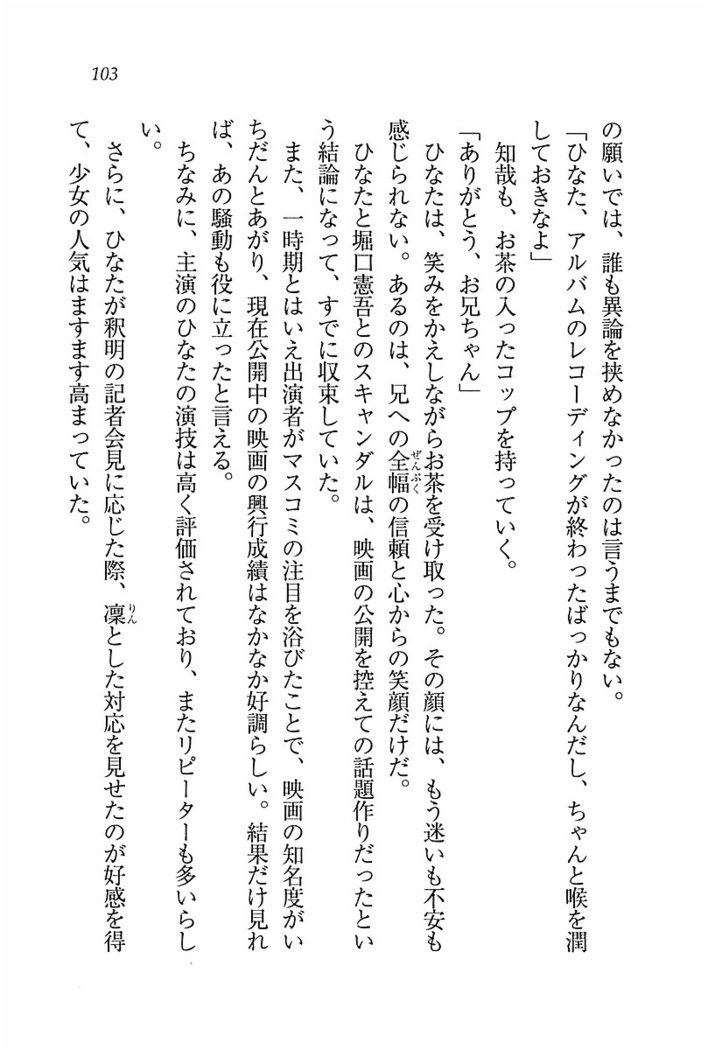 103
の願いでは、誰も異論を挟めなかったのは言うまでもない。
「ひなた、アルバムのレコーディングが終わったばっかりなんだし、ちゃんと喉を潤
しておきなよ」
知哉も、お茶の入ったコップを持っていく。
「ありがとう、お兄ちゃん」
ひなたは、笑みをかえしながらお茶を受け取った。その顔には、もう迷いも不安も
感じられない。あるのは、兄への全幅ぜんぷくの信頼と心からの笑顔だけだ。
ひなたと堀口憲吾とのスキャンダルは、映画の公開を控えての話題作りだったとい
う結論になって、すでに収束していた。
また、一時期とはいえ出演者がマスコミの注目を浴びたことで、映画の知名度がい
ちだんとあがり、現在公開中の映画の興行成績はなかなか好調らしい。結果だけ見れ
ば、あの騒動も役に立ったと言える。
ちなみに、主演のひなたの演技は高く評価されており、またリピーターも多いらし
い。
さらに、ひなたが釈明の記者会見に応じた際、凜りんとした対応を見せたのが好感を得
て、少女の人気はますます高まっていた。